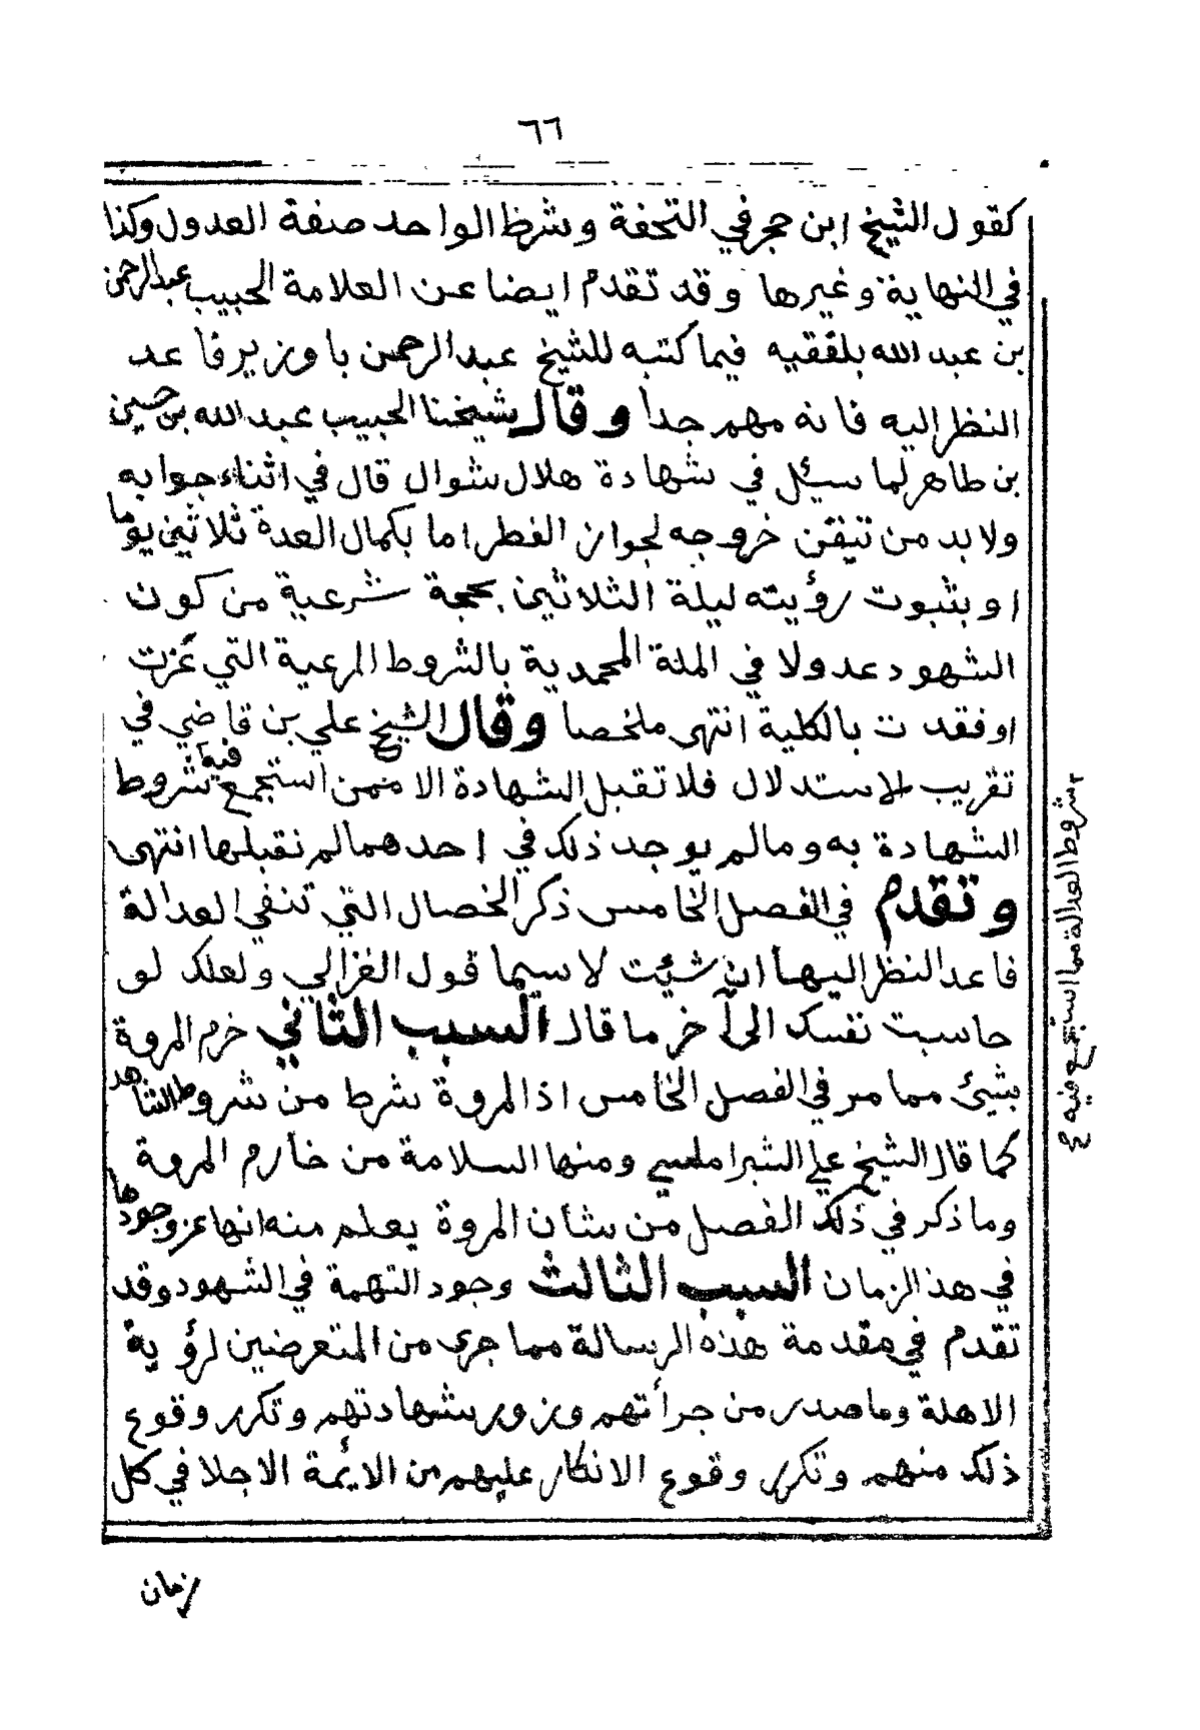 ٦٦
كقول الشيخ ابن حجر في التحفة وشرط الواحد صفة العدول وكذا
في النهاية وغيرها وقد تقدم ايضا عن العلامة الحبيب عبدالرحمن
بن عبد الله بلفقيه فيما كتبه للشيخ عبد الرحمن باوزير فاعد
النظر اليه فانه مهم جدا وقال شيخنا الحبيب عبد الله بن حسين
بن طاهر لما سيئل في شهادة هلال شوال قال في اثناء جوابه
ولا بد من تيقن خروجه لجواز الفطر اما بكمال العدة ثلاثين يوما
او بثبوت رؤيته ليلة الثلاثين بحجة شرعية من كون
الشهود عدولا في الملة المحمدية بالشروط المرعية التي عزت
او فقدت بالكلية انتهى ملخصا وقال الشيخ علي بن قاضي في
تقريب الاستدلال فلا تقبل الشهادة الا ممن استجمع فيه شروط
الشهادة به وما لم يوجد ذلك في احدهما لم نقبلها انتهى
وتقدم في الفصل الخامس ذكر الخصال التي تنفي العدالة
فاعد النظر اليها ان شيئت لا سيما قول الغزالي ولعلك لو
حاسبت نفسك الى آخر ما قال السبب الثاني خرم المروة
بشيئ مما مر في الفصل الخامس اذ المروة شرط من شروط الشاهد
كما قال الشيخ علي الشبراملسي ومنها السلامة من خارم المروة
وما ذكر في ذلك الفصل من شان المروة يعلم منه انها عز وجودها
في هذ الزمان السبب الثالث وجود التهمة في الشهود وقد
تقدم في مقدمة هذه الرسالة مما جرى من المتعرضين لرؤية
الاهلة وما صدر من جرأتهم وزور شهادتهم وتكرر وقوع
ذلك منهم وتكرر وقوع الانكار عليهم من الايمة الاجلا في كل
زمان
شروط العدالة مما استجمع فيه